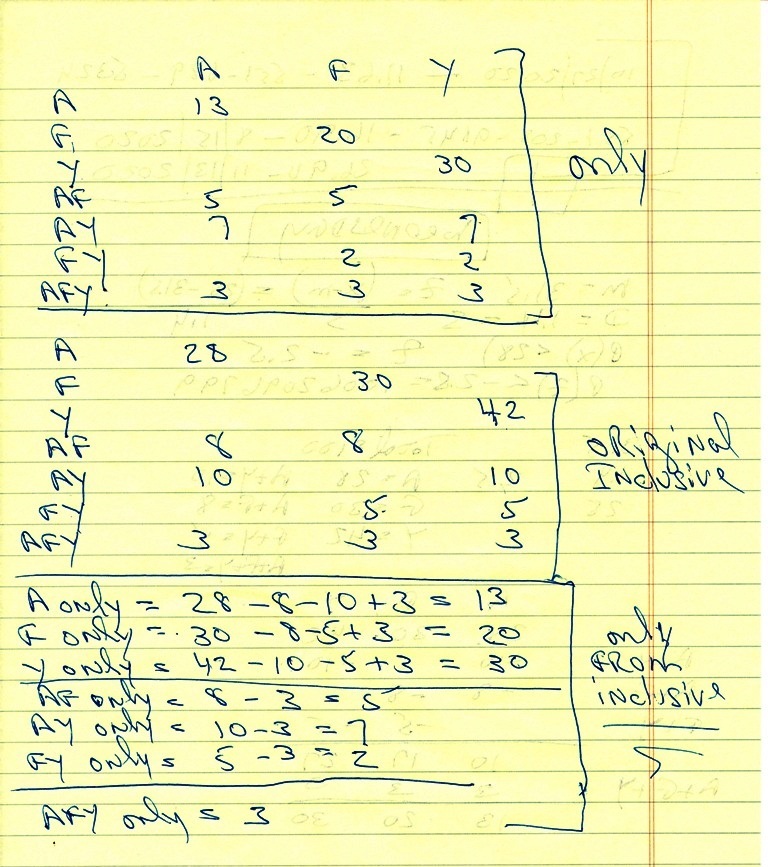 A F Y
A 13
F 20
Y 30
only
AF 5 5
AY 7 7
FY 2 2
AFY 3 3 3
A 28
F 30
Y 42
AF 8 8
ORiginal
AY 10 10
Inclusive
FY 5 5
AFY 3 3 3
A only = 28 - 8 - 10 + 3 = 13
F only = 30 - 8 - 5 + 3 = 20
Y only = 42 - 10 - 5 + 3 = 30
only
FROM
inclusive
AF only = 8 - 3 = 5
AY only = 10 - 3 = 7
FY only = 5 - 3 = 2
AFY only = 3